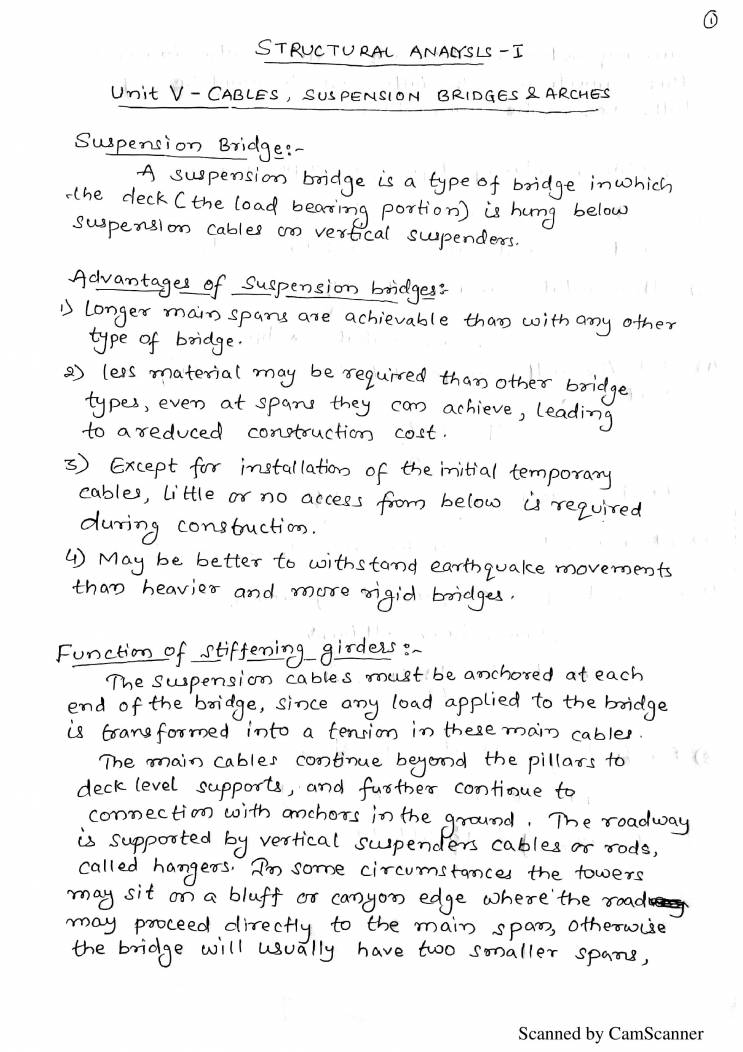 1
STRUCTURAL ANALYSIS - I
Unit V - CABLES, SUSPENSION BRIDGES & ARCHES
Suspension Bridge:-
A suspension bridge is a type of bridge in which
the deck (the load bearing portion) is hung below
suspension cables on vertical suspenders.
Advantages of Suspension bridges:
1) Longer main spans are achievable than with any other
type of bridge.
2) less material may be required than other bridge
types, even at spans they can achieve, leading
to a reduced construction cost.
3) Except for installation of the initial temporary
cables, little or no access from below is required
during construction.
4) May be better to withstand earthquake movements
than heavier and more rigid bridges.
Function of stiffening girders:-
The suspension cables must be anchored at each
end of the bridge, since any load applied to the bridge
is transformed into a tension in these main cables.
The main cables continue beyond the pillars to
deck level supports, and further continue to
connection with anchors in the ground. The roadway
is supported by vertical suspenders cables or rods,
called hangers. In some circumstances the towers
may sit on a bluff or canyon edge where the road
may proceed directly to the main span, otherwise
the bridge will usually have two smaller spans,
Scanned by CamScanner